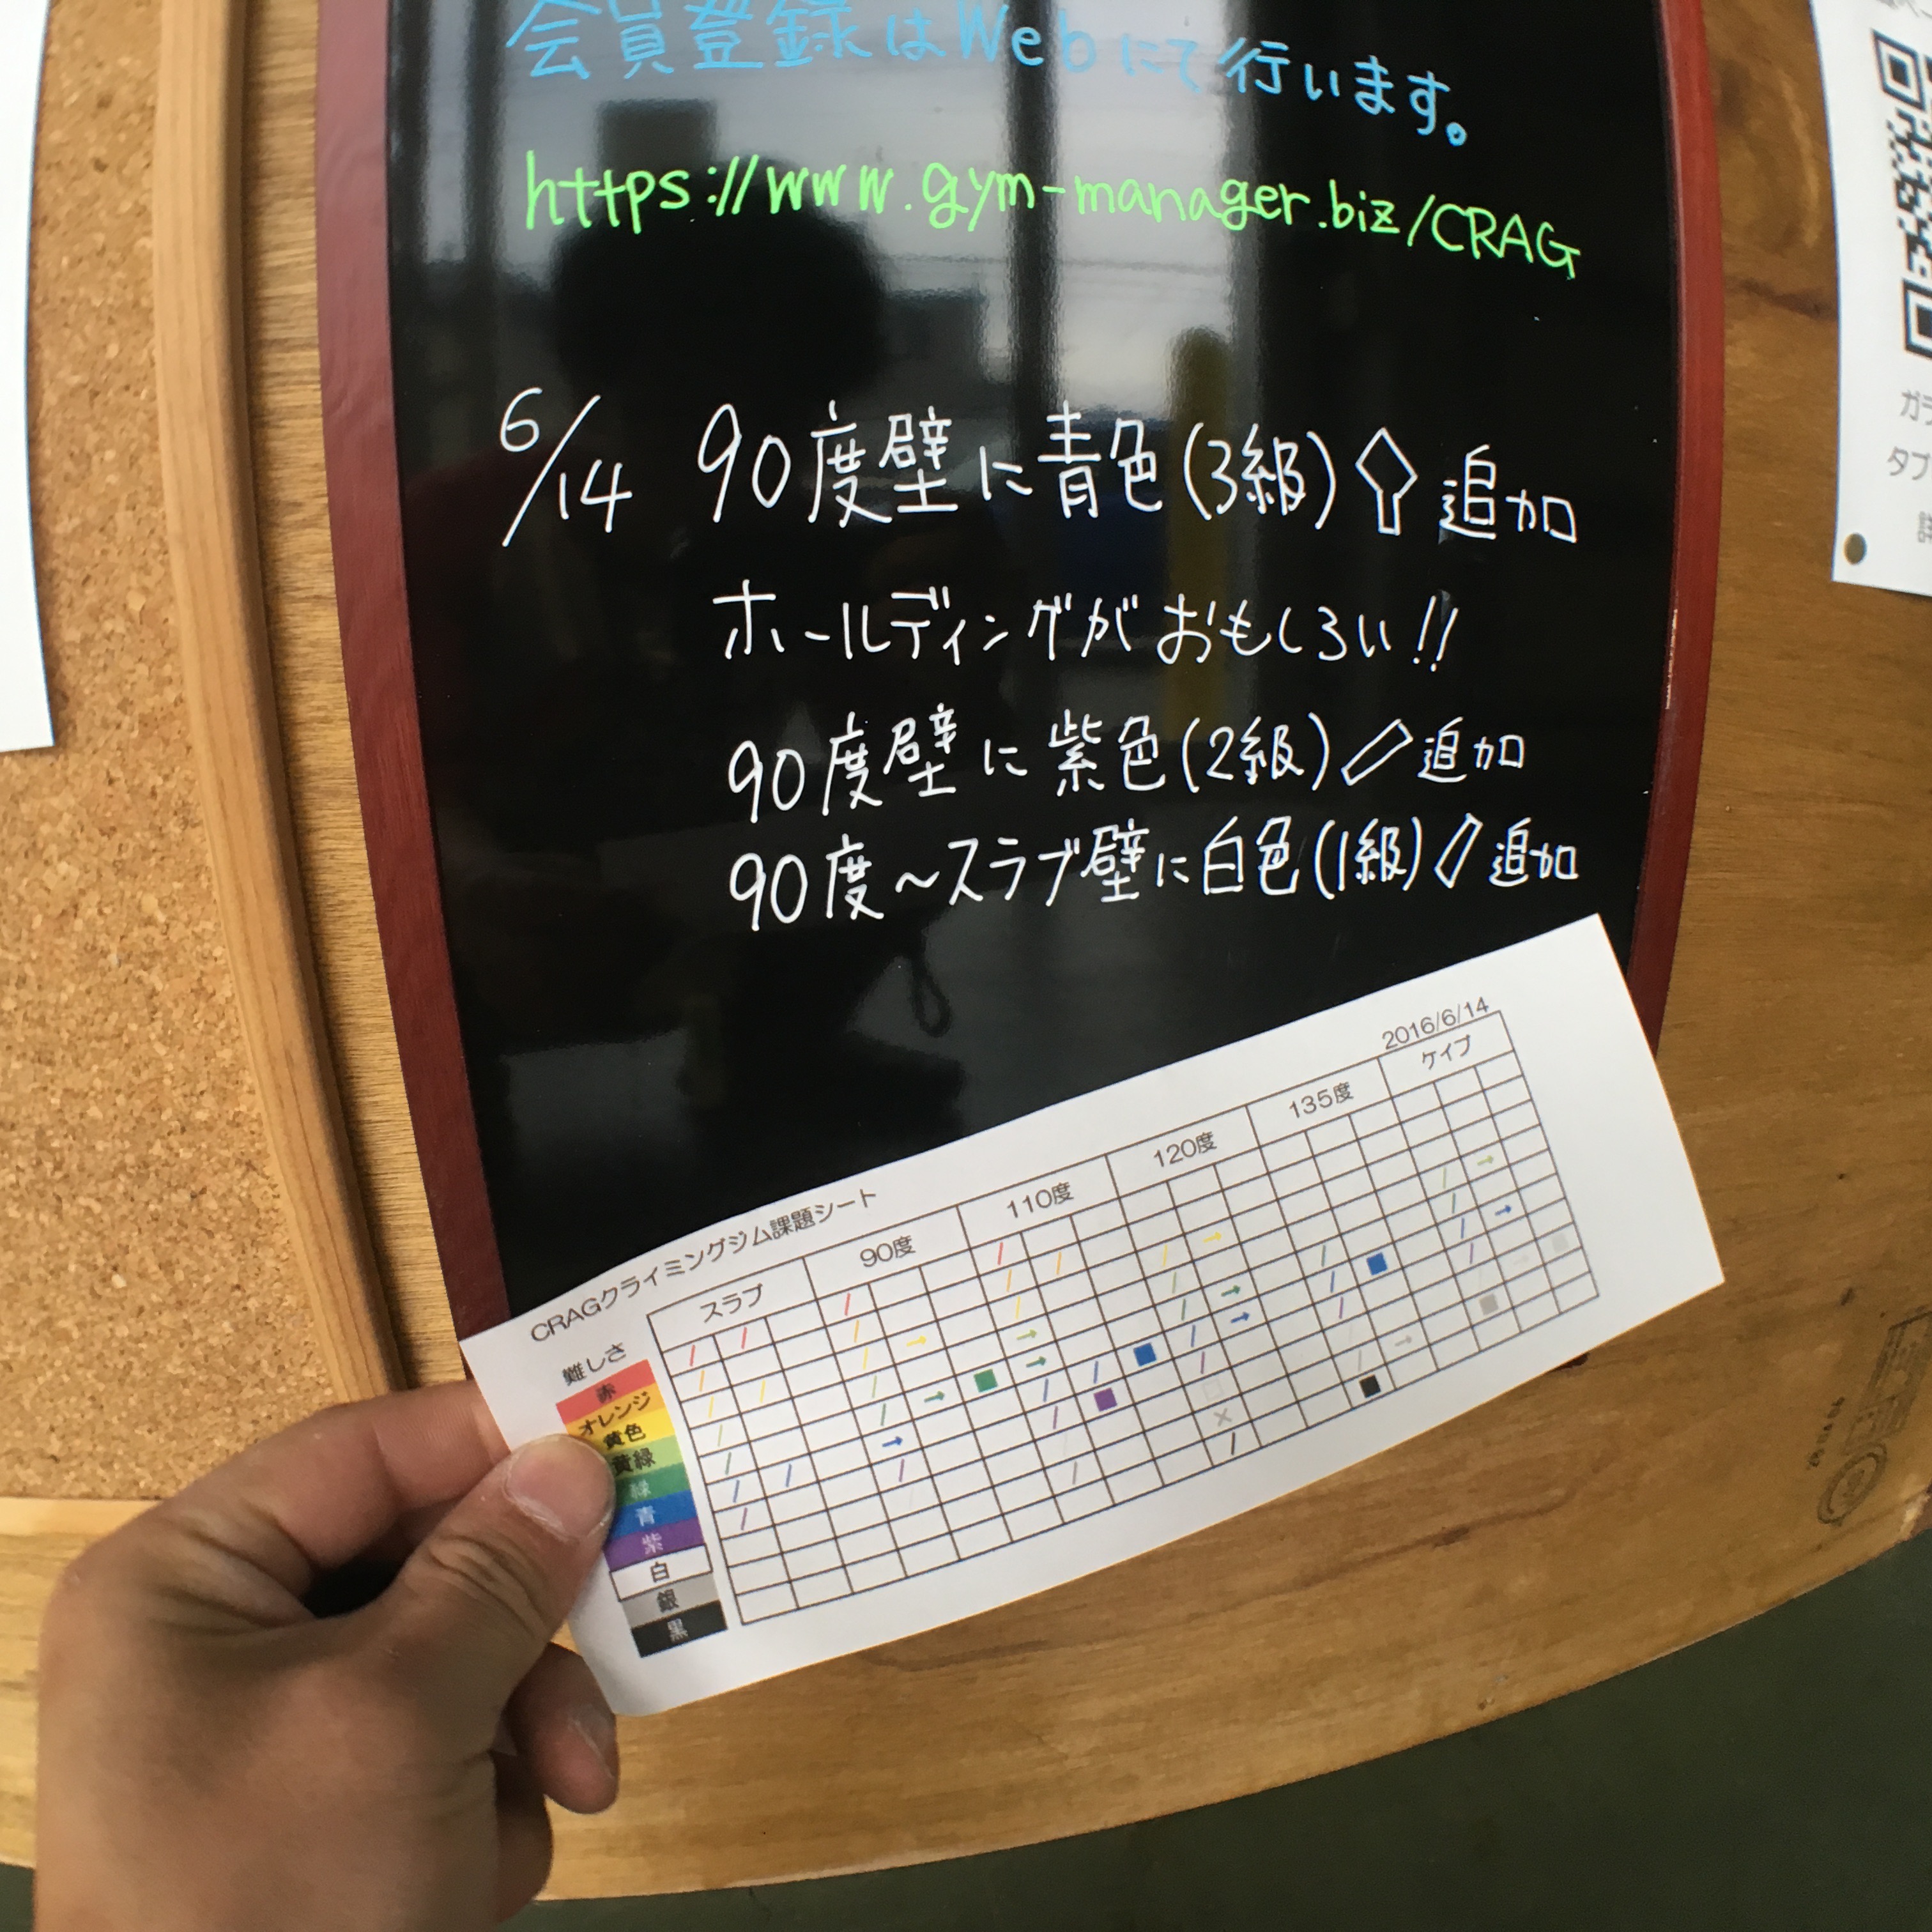 会員登録はWebにて行います。
https://www.gym-manager.biz/CRAG
6/14 90度壁に青色(3級) 追加
ホールディングがおもしろい!!
90度壁に紫色(2級) 追加
90度~スラブ壁に白色(1級) 追加
2016/6/14
CRAGクライミングジム課題シート
難しさ スラブ 90度 110度 120度 135度 ケイブ
赤
オレンジ
黄色
黄緑
緑
青
紫
白
銀
黒